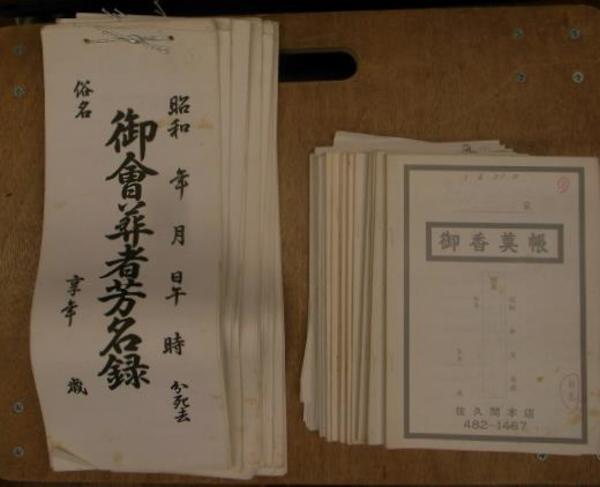 昭和 年 月 日午 時 分死去
御會葬者芳名録
俗名
享年 歳
家
御香奠帳
佐久間本店
482-1467